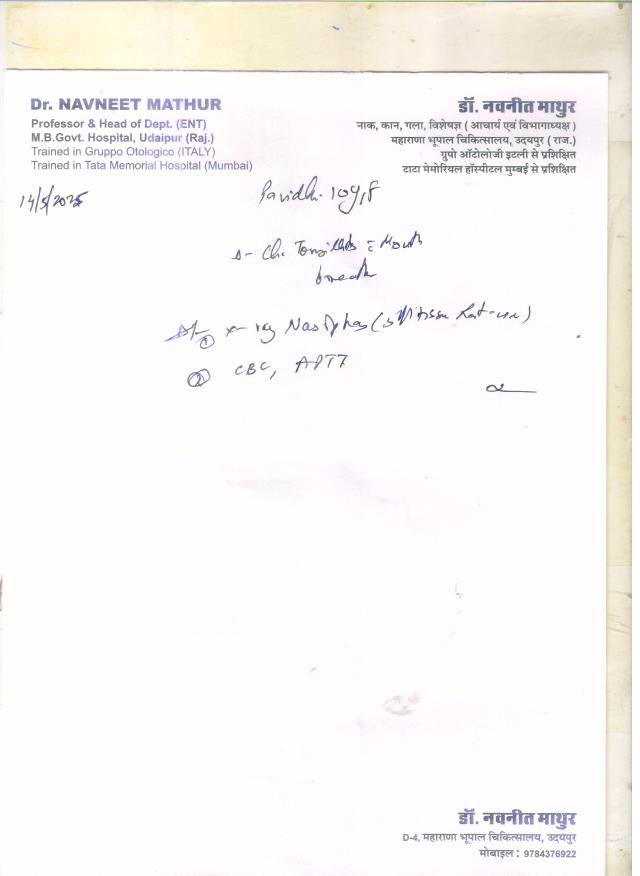 Dr. NAVNEET MATHUR
Professor & Head of Dept. (ENT)
M.B.Govt. Hospital, Udaipur (Raj.)
Trained in Gruppo Otologico (ITALY)
Trained in Tata Memorial Hospital (Mumbai)
डॉ. नवनीत माथुर
नाक, कान, गला, विशेषज्ञ ( आचार्य एवं विभागाध्यक्ष )
महाराणा भूपाल चिकित्सालय, उदयपुर ( राज.)
ग्रुपो ऑटोलोजी इटली से प्रशिक्षित
टाटा मेमोरियल हॉस्पीटल मुम्बई से प्रशिक्षित
14/5/2025
10y,F
Mouth
x-ray
② CBC,
डॉ. नवनीत माथुर
D-4, महाराणा भूपाल चिकित्सालय, उदयपुर
मोबाइल : 9784376922